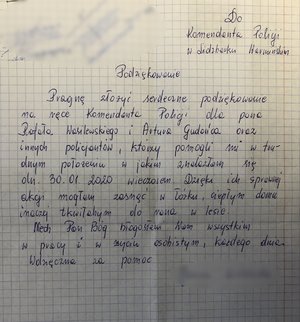 Do
Komendanta Policji
w Lidzbarku Warmińskim
Podziękowanie
Pragnę złożyć serdeczne podziękowanie
na ręce Komendanta Policji dla pana
Rafała Wasilewskiego i Artura Gudońca oraz
innych policjantów, którzy pomogli mi w tru-
dnym położeniu w jakim znalazłam się
dn. 30.01 2020 wieczorem. Dzięki ich sprawnej
akcji mogłam zasnąć w łóżku, ciepłym domu
inaczej tkwiłabym do rana w lesie.
Niech Pan Bóg błogosławi Wam wszystkim
w pracy i w życiu osobistym, każdego dnia.
Wdzięczna za pomoc